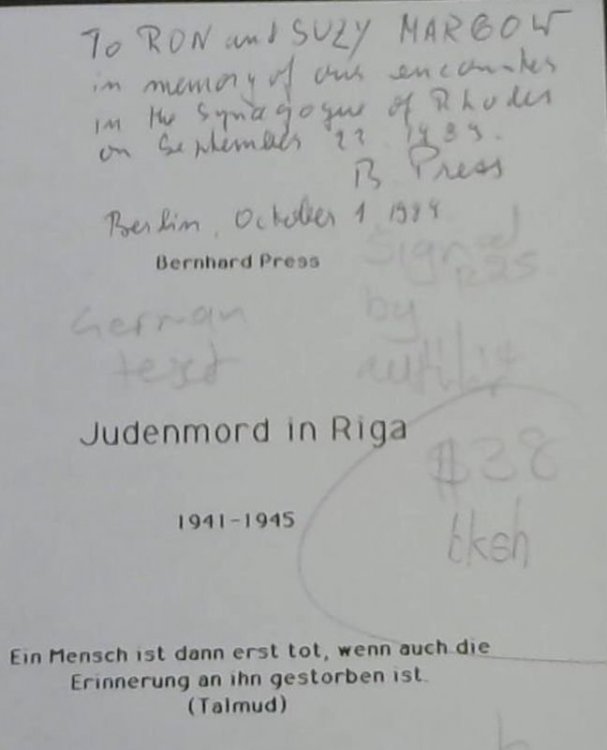 To RON and SUZY MARGOW
in memory of our encounter
in the Synagogue of Rhodes
on September 22 1989.
B. Press
Berlin, October 1 1989
Bernhard Press
Signed
by
German
text
Judenmord in Riga
$38
tksh
1941-1945
Ein Mensch ist dann erst tot, wenn auch die
Erinnerung an ihn gestorben ist.
(Talmud)